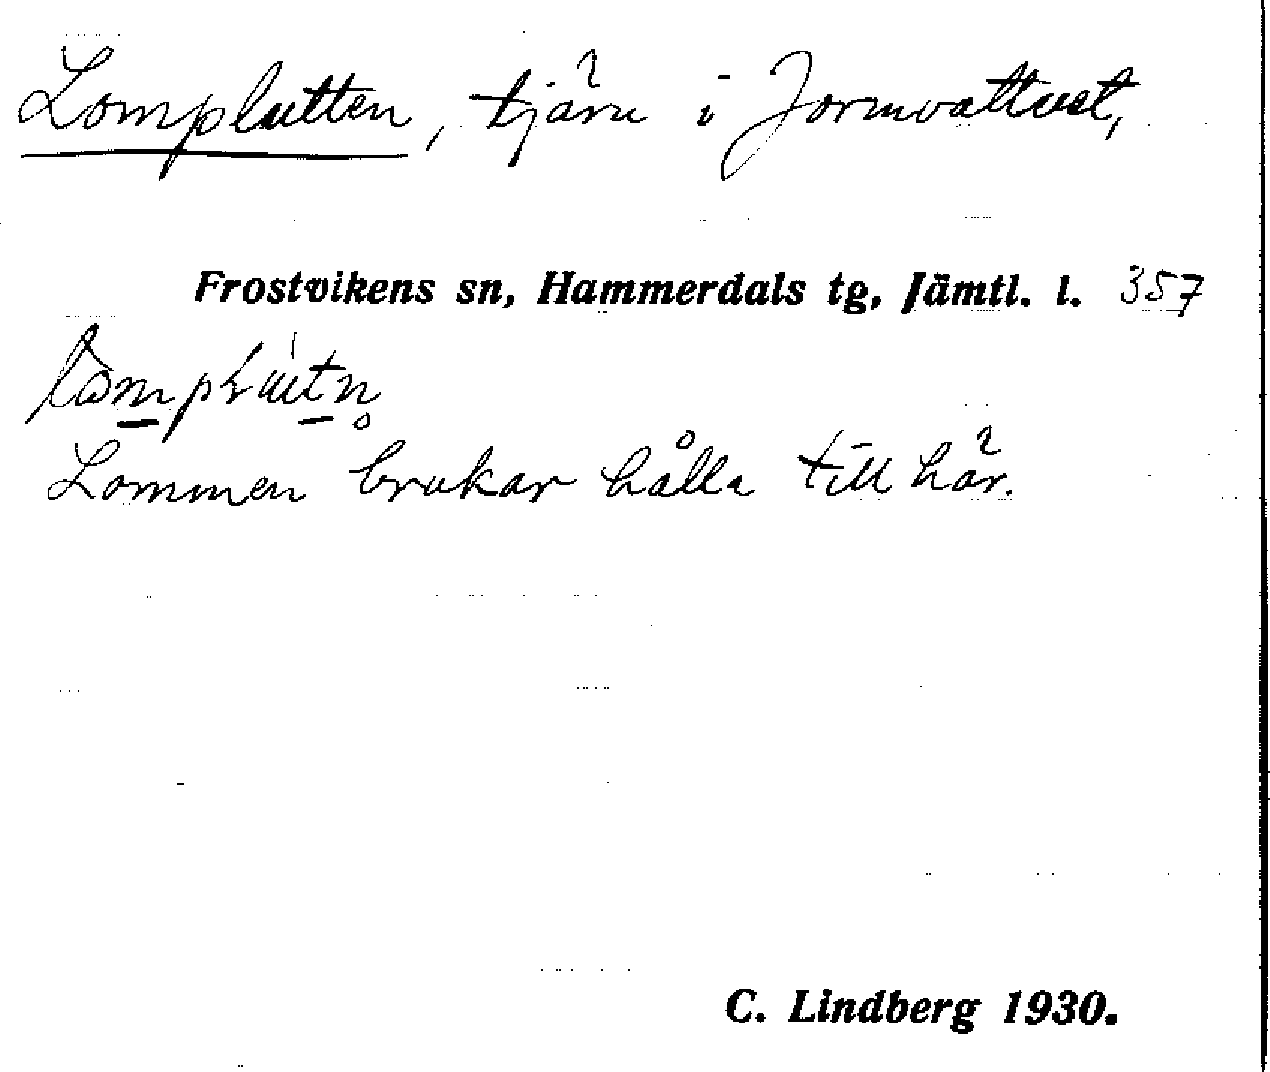 Lomplutten, tjärn i Jormvattnet,
Frostvikens sn, Hammerdals tg, Jämtl. l. 357
Lommen brukar hålla till här.
C. Lindberg 1930.